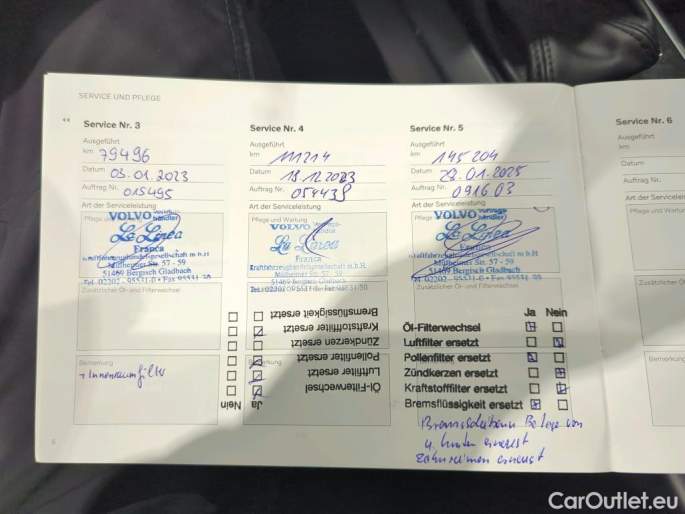 SERVICE UND PFLEGE
Service Nr. 3
Ausgeführt
km 79496
Datum 03.01.2023
Auftrag Nr. 015495
Art der Serviceleistung
Pflege und Wartung
VOLVO Vertrags-
händler
La Linea
Franca
Kraftfahrzeughandelsgesellschaft m.b.H
Mülheimer Str. 57 - 59
51469 Bergisch Gladbach
Tel. 02202 - 95531-0 • Fax 95531-20
Zusätzlicher Öl- und Filterwechsel
Bemerkung
+ Innenraumfilter
Service Nr. 4
Ausgeführt
km 111214
Datum 13.12.2023
Auftrag Nr. 054438
Art der Serviceleistung
Pflege und Wartung
VOLVO Vertrags-
händler
La Linea
Franca
Kraftfahrzeughandelsgesellschaft m.b.H
Mülheimer Str. 57 - 59
51469 Bergisch Gladbach
Ja Nein
Öl-Filterwechsel
Luftfilter ersetzt
Pollenfilter ersetzt
Zündkerzen ersetzt
Kraftstofffilter ersetzt
Bremsflüssigkeit ersetzt
Service Nr. 5
Ausgeführt
km 145204
Datum 29.01.2025
Auftrag Nr. 091603
Art der Serviceleistung
Pflege und Wartung
VOLVO Vertrags-
händler
La Linea
Franca
Kraftfahrzeughandelsgesellschaft m.b.H
Mülheimer Str. 57 - 59
51469 Bergisch Gladbach
Tel. 02202 - 95531-0 • Fax 95531-20
Zusätzlicher Öl- und Filterwechsel
Ja Nein
Öl-Filterwechsel
Luftfilter ersetzt
Pollenfilter ersetzt
Zündkerzen ersetzt
Kraftstofffilter ersetzt
Bremsflüssigkeit ersetzt
Bremsscheiben Beläge von
u. hinten erneuert
Zahnriemen erneuert
Service Nr. 6
Ausgeführt
km
Datum
Auftrag Nr.
Art der Serviceleistung
Pflege und Wartung
Zusätzlicher Öl- und
Bemerkung
6
CarOutlet.eu